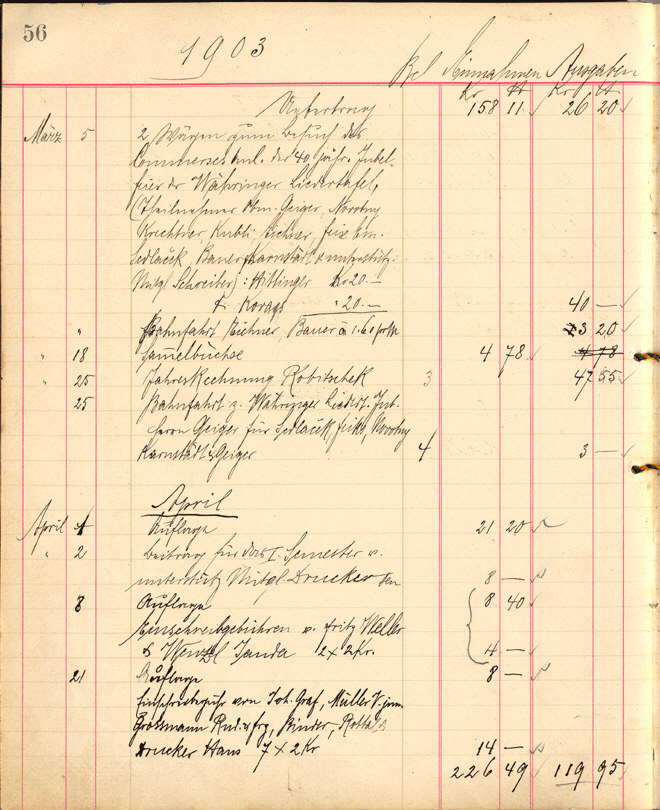 56
1903
Bel Einnahmen Ausgaben
Kr H Kr H
Übertrag 158 11 26 20
März 5 2 Wägen zum Besuch des
Commerses anl. der 40 jähr. Jubel-
feier der Währinger Liedertafel,
(Theilnehmer Obm. Geiger, Novotny
Krechtner Kubli Eichner,
Sedlaček Bauer Karnstädt u unterstütz.
Mitgl Schreiber): Hittinger Kr 20.—
F. Kovacs " 20.— 40 —
" Bahnfahrt Eichner, Bauer à 1.60 3 20
" 18 Samelbüchse 4 78 4 78
" 25 Jahres Rechnung Robitschek 3 47 55
25 Bahnfahrt z. Währinger Liedert. Jub.
Herrn Geiger für Sedlaček, Novotny
Karnstädt & Geiger 4 3 —
April
April 1 Auflage 21 20
" 2 Beitrag für das I. Semester v.
unterstütz Mitgl. Drucker sen 8 —
8 Auflage 8 40
Einschreibgebühren v. Fritz Weller
& Wenzl Janda 2 x 2 Kr. 4 —
21 Auflage 8 —
Einschreibegebühr von Joh. Graf, Müller V. jun.
Grossmann Rud. & Frz, Binder,
Drucker Hans 7 x 2 Kr 14 —
226 49 119 95